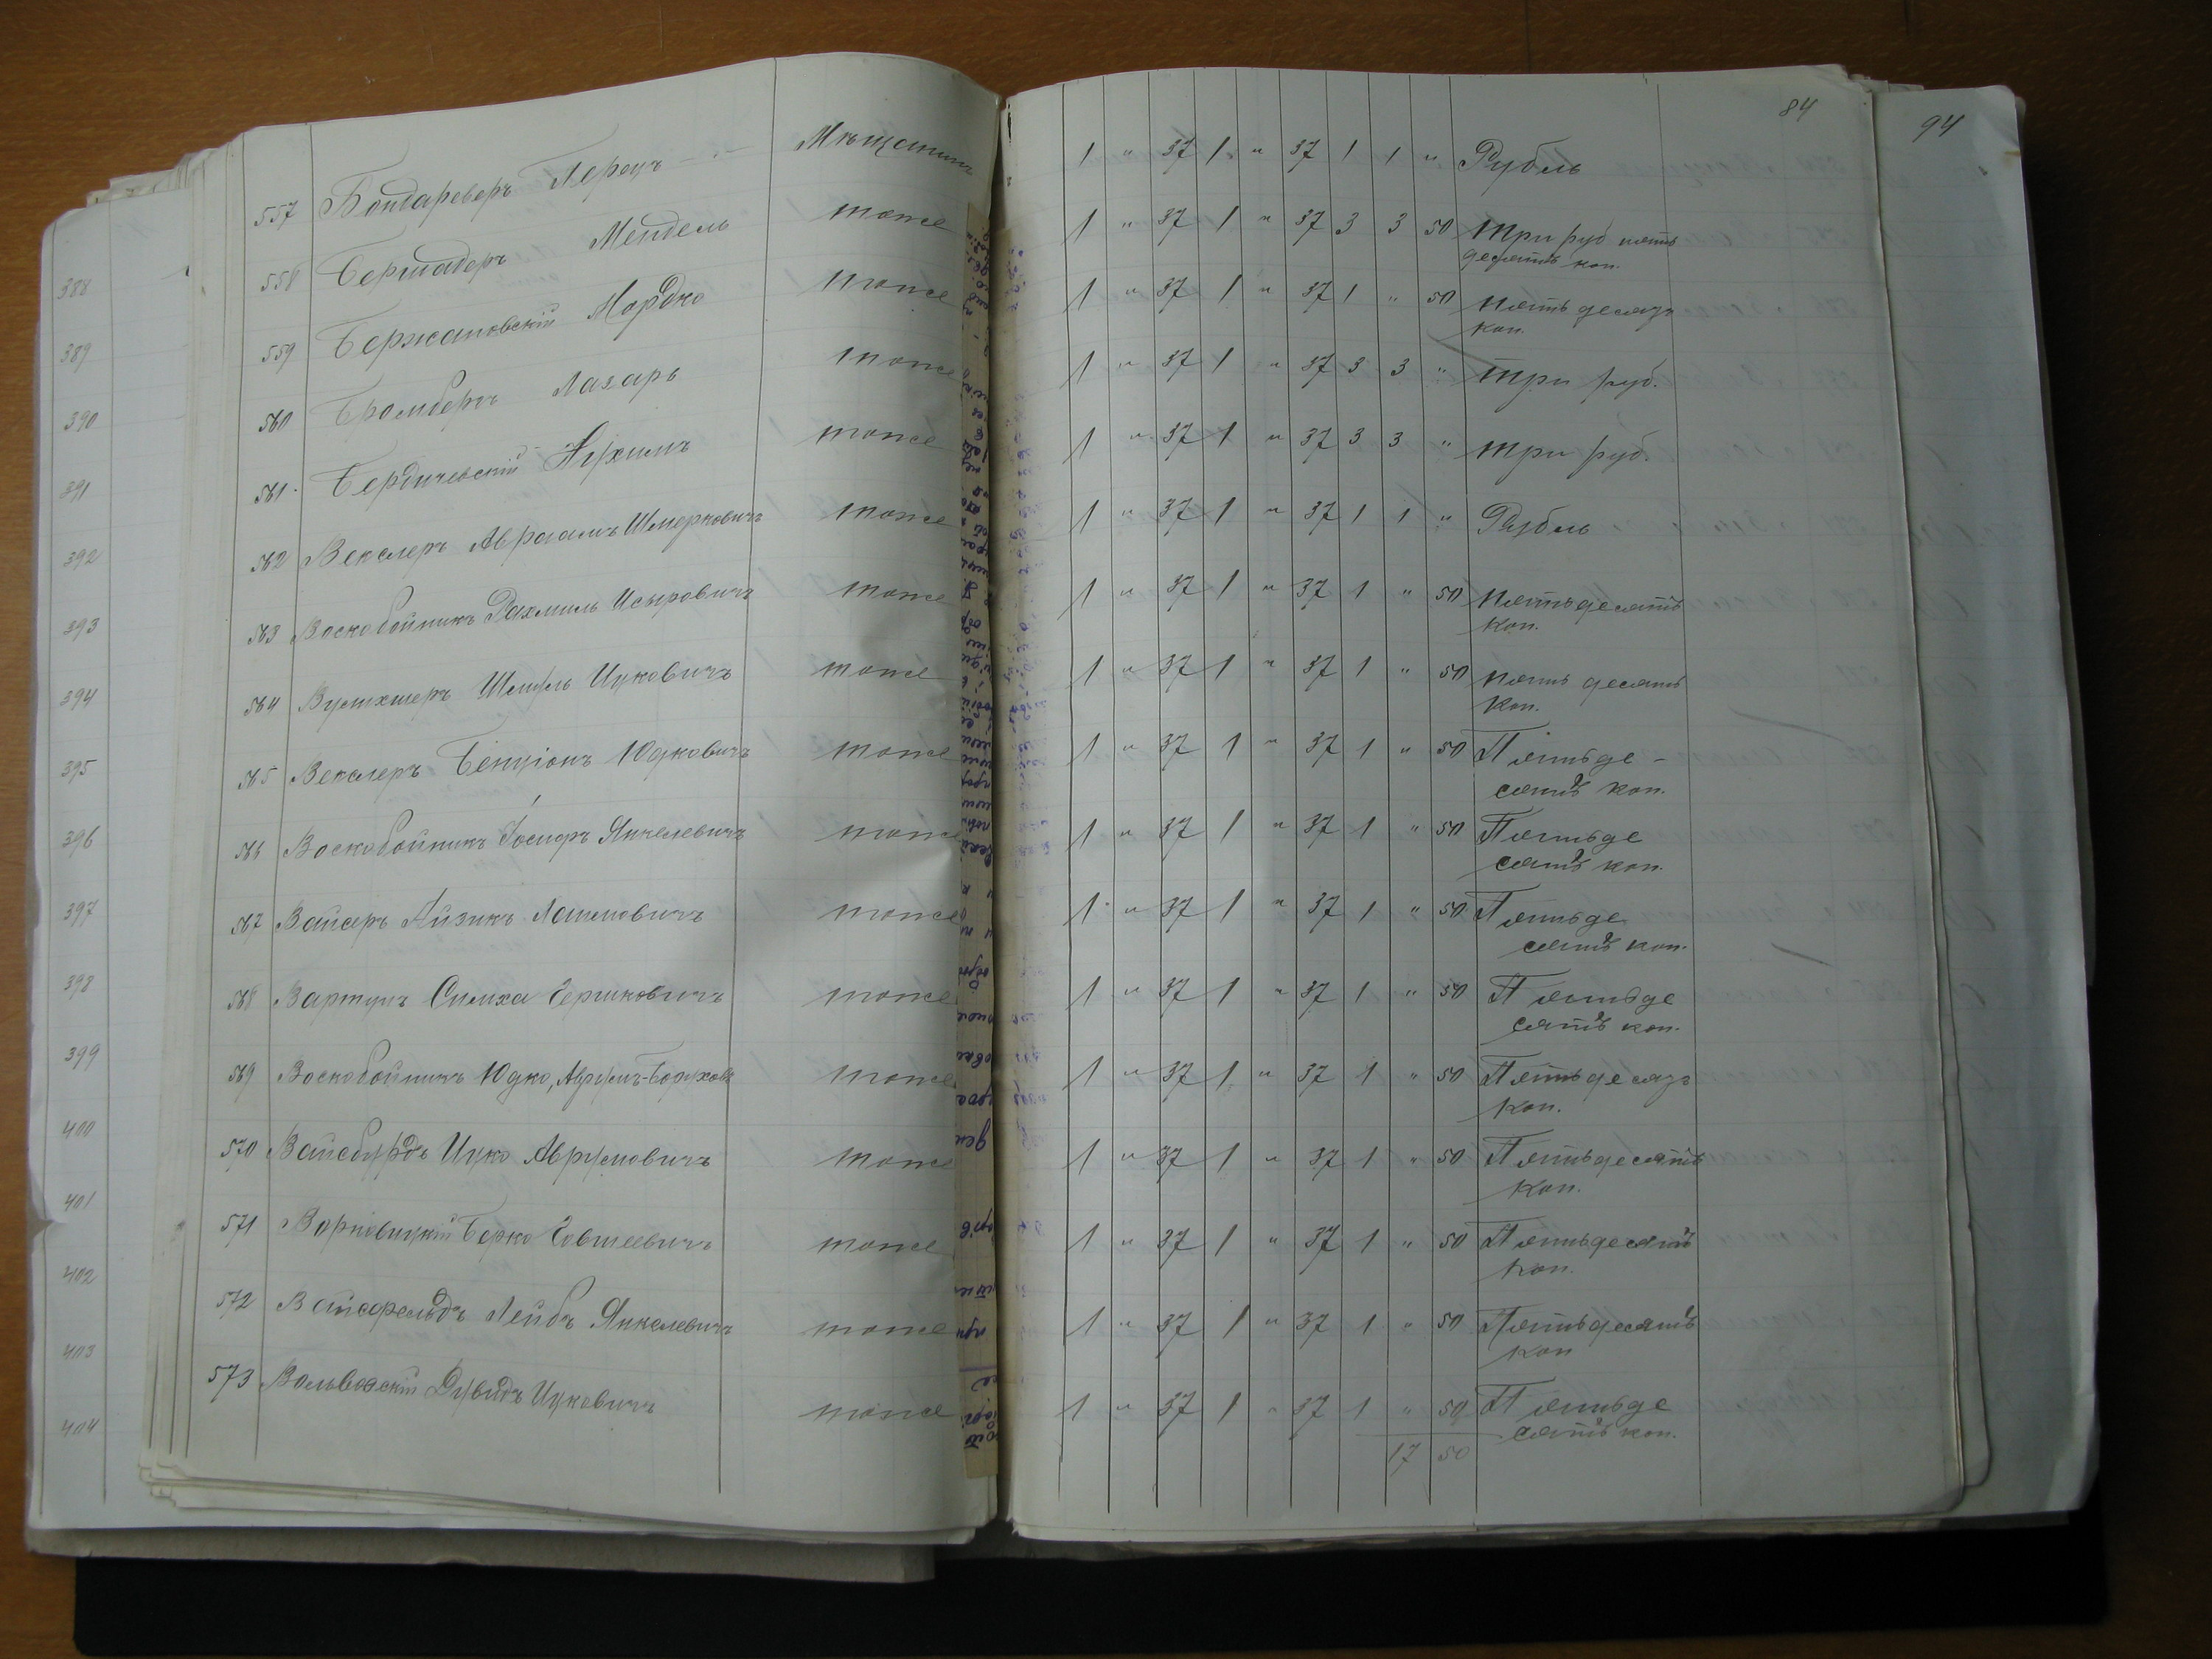 84
94
557 Бондареверъ Лерецъ Мѣщанинъ 1 " 37 1 " 37 1 1 " Рубль
558 Мендель тоже 1 " 37 1 " 37 3 3 50 три руб пять
десятъ коп.
559 Бержановскій Мордко тоже 1 " 37 1 " 37 1 " 50 пятьдесятъ
коп.
560 Бромбергъ Лазарь тоже 1 " 37 1 " 37 3 3 " три руб.
561 Бердичевскій Нухимъ тоже 1 " 37 1 " 37 3 3 " три руб.
562 Векслеръ Авраамъ Шмерковичъ тоже 1 " 37 1 " 37 1 1 " Рубль
563 Воскобойникъ Рахмиль Исыровичъ тоже 1 " 37 1 " 37 1 " 50 пятьдесятъ
коп.
564 Шмуль Ицковичъ тоже 1 " 37 1 " 37 1 " 50 пять десятъ
коп.
565 Векслеръ Бенціонъ Юдковичъ тоже 1 " 37 1 " 37 1 " 50 Пятьде-
сятъ коп.
566 Воскобойникъ Іосифъ Янкелевичъ тоже 1 " 37 1 " 37 1 " 50 Пятьде
сятъ коп.
567 Вайсеръ Айзикъ тоже 1 " 37 1 " 37 1 " 50 Пятьде
сятъ коп.
568 Симха Гершковичъ тоже 1 " 37 1 " 37 1 " 50 Пятьде
сятъ коп.
569 Воскобойникъ Юдко, Аврумъ-Борухов тоже 1 " 37 1 " 37 1 " 50 Пятьдесятъ
коп.
570 Вайсбурдъ Ицко Аврумовичъ тоже 1 " 37 1 " 37 1 " 50 Пятьдесятъ
коп.
571 Ворновицкій Берко Говшеевичъ тоже 1 " 37 1 " 37 1 " 50 Пятьдесятъ
коп.
572 Вайсфельдъ Лейбъ Янкелевичъ тоже 1 " 37 1 " 37 1 " 50 Пятьдесятъ
коп
573 Вольвовскій Дувидъ Ицковичъ тоже 1 " 37 1 " 37 1 " 50 Пятьде
сятъ коп.
17 50
388
389
390
391
392
393
394
395
396
397
398
399
400
401
402
403
404